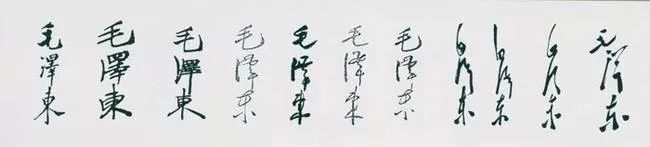 毛澤東
毛澤東
毛澤東
毛泽东
毛澤東
毛泽东
毛泽东
毛泽东
毛泽东
毛泽东
毛泽东